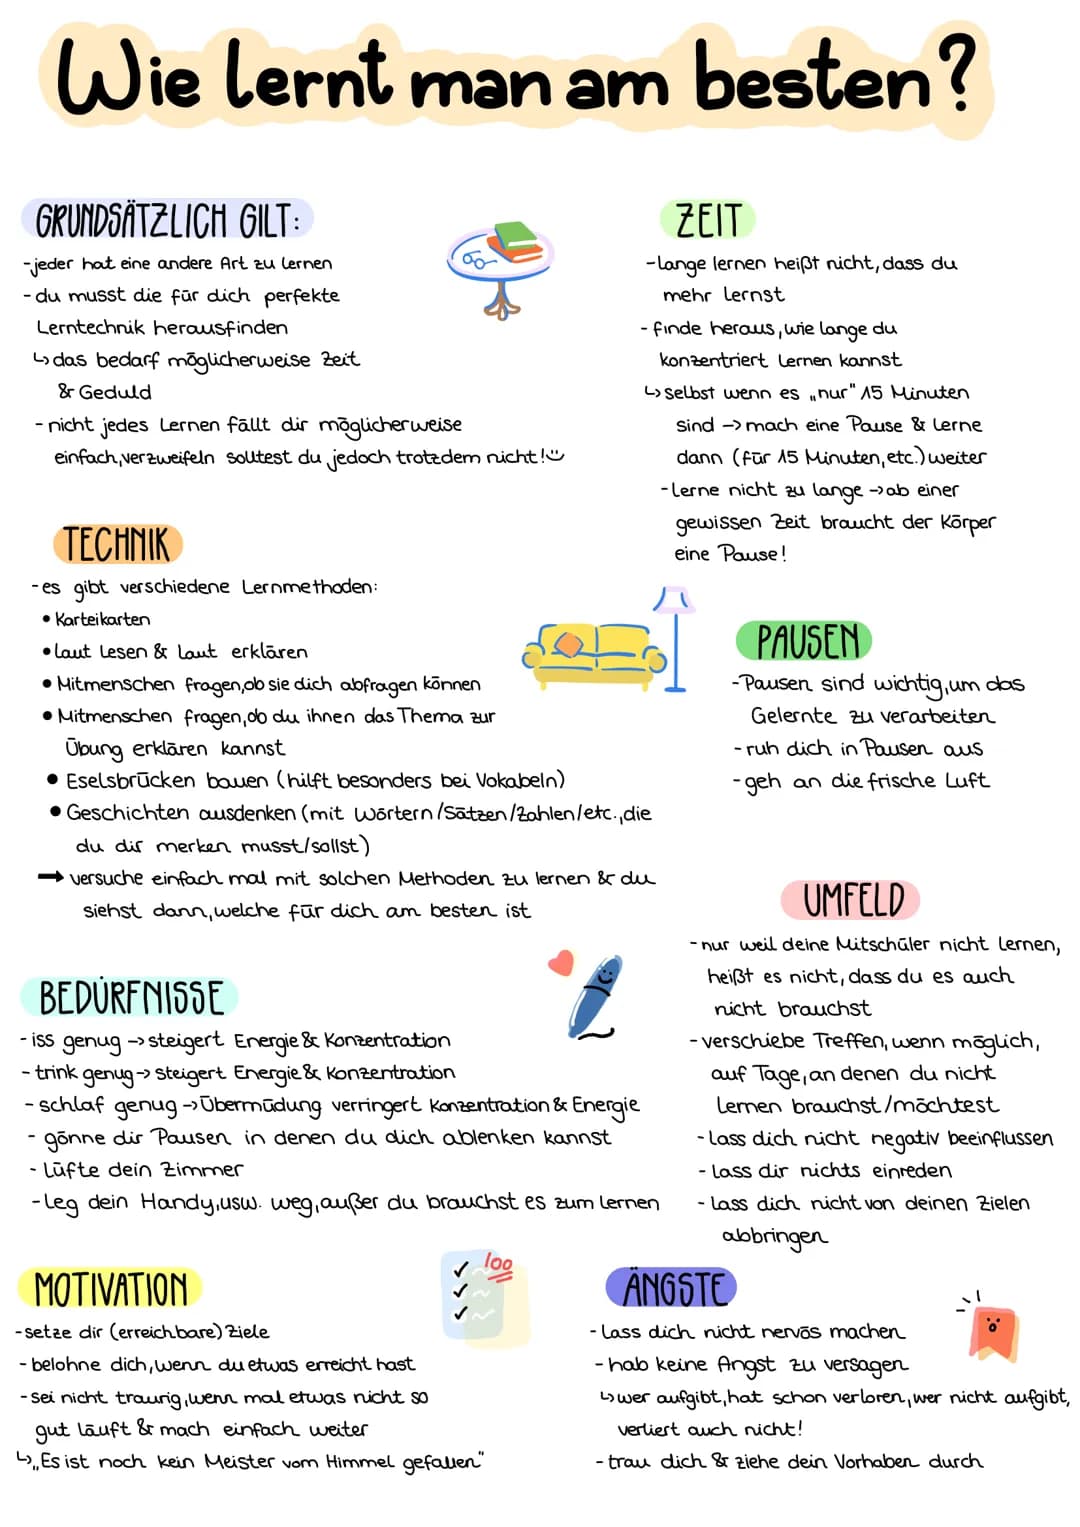 Wie lernt man am besten?
GRUNDSÄTZLICH GILT:
-jeder hat eine andere Art zu lernen
- du musst die für dich perfekte
Lerntechnik herausfinden
↳ das bedarf möglicherweise Zeit
& Geduld
- nicht jedes Lernen fällt dir möglicherweise
einfach, verzweifeln solltest du jedoch trotzdem nicht! ☺
TECHNIK
- es gibt verschiedene Lernmethoden:
• Karteikarten
• laut lesen & laut erklären
• Mitmenschen fragen, ob sie dich abfragen können
• Mitmenschen fragen, ob du ihnen das Thema zur
Übung erklären kannst
• Eselsbrücken bauen (hilft besonders bei Vokabeln)
• Geschichten ausdenken (mit Wörtern/Sätzen/Zahlen/etc., die
du dir merken musst/sollst)
→ versuche einfach mal mit solchen Methoden zu lernen & du
siehst dann, welche für dich am besten ist
BEDÜRFNISSE
- iss genug -> steigert Energie & Konzentration
- trink genug -> steigert Energie & Konzentration
- schlaf genug -> Übermüdung verringert Konzentration & Energie
- gönne dir Pausen in denen du dich ablenken kannst
- lüfte dein Zimmer
- leg dein Handy, usw. weg, außer du brauchst es zum lernen
MOTIVATION
- setze dir (erreichbare) Ziele
- belohne dich, wenn du etwas erreicht hast
- sei nicht traurig, wenn mal etwas nicht so
gut läuft & mach einfach weiter
↳ „Es ist noch kein Meister vom Himmel gefallen"
100
ZEIT
- lange lernen heißt nicht, dass du
mehr lernst
- finde heraus, wie lange du
konzentriert lernen kannst
↳ selbst wenn es „nur" 15 Minuten
sind -> mach eine Pause & lerne
dann (für 15 Minuten, etc.) weiter
- lerne nicht zu lange -> ab einer
gewissen Zeit braucht der Körper
eine Pause!
PAUSEN
- Pausen sind wichtig, um das
Gelernte zu verarbeiten
- ruh dich in Pausen aus
- geh an die frische Luft
UMFELD
- nur weil deine Mitschüler nicht lernen,
heißt es nicht, dass du es auch
nicht brauchst
- verschiebe Treffen, wenn möglich,
auf Tage, an denen du nicht
lernen brauchst/möchtest
- lass dich nicht negativ beeinflussen
- lass dir nichts einreden
- lass dich nicht von deinen Zielen
abbringen
ÄNGSTE
- lass dich nicht nervös machen
- hab keine Angst zu versagen
↳ wer aufgibt, hat schon verloren, wer nicht aufgibt,
verliert auch nicht!
- trau dich & ziehe dein Vorhaben durch